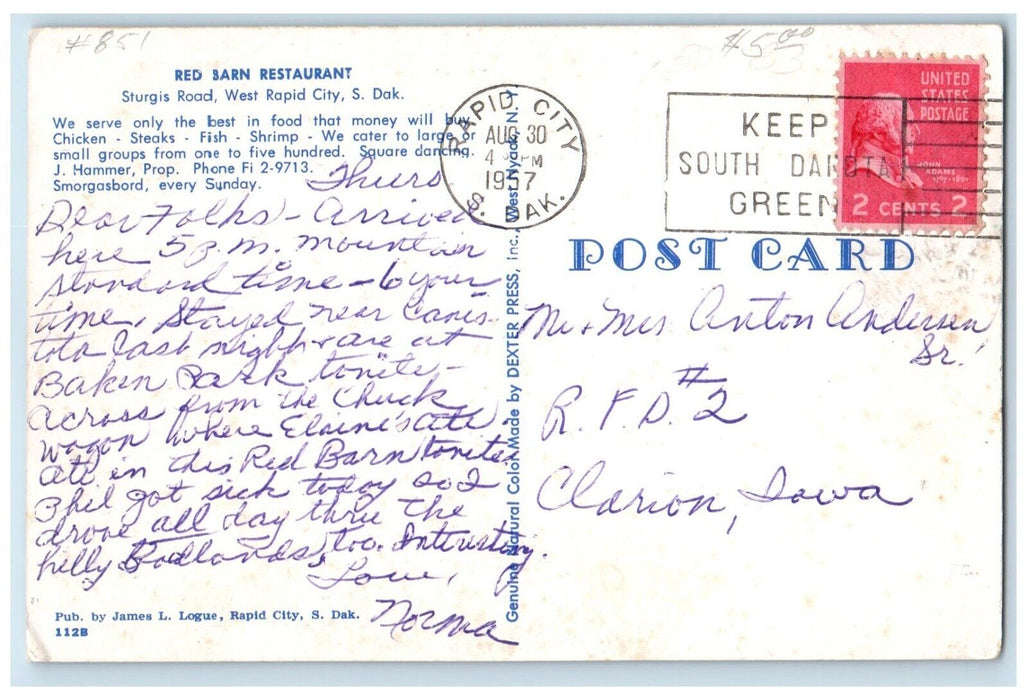 #851
$5.00
RED BARN RESTAURANT
Sturgis Road, West Rapid City, S. Dak.
We serve only the best in food that money will buy
Chicken - Steaks - Fish - Shrimp - We cater to large or
small groups from one to five hundred. Square dancing.
J. Hammer, Prop. Phone Fi 2-9713.
Smorgasbord, every Sunday.
Thurs
Dear Folks - Arrived
here 5 p.m. mountain
standard time - 6 your
time. Stayed near Canis-
tota last night & are at
Baken Park tonite -
across from the Chuck
wagon where Elaine's ate.
Ate in this Red Barn tonite.
Phil got sick today so I
drove all day thru the
hilly Badlands, too. Interesting.
Love,
Norma
Pub. by James L. Logue, Rapid City, S. Dak.
112B
Genuine Natural Color Made by DEXTER PRESS, Inc., West Nyack, N.Y.
RAPID CITY
AUG 30
4 PM
1957
S. DAK.
KEEP
SOUTH DAKOTA
GREEN
UNITED
STATES
POSTAGE
JOHN
ADAMS
1797-1801
2 CENTS 2
POST CARD
Mr & Mrs Anton Andersen
Sr.
R.F.D. #2
Clarion, Iowa